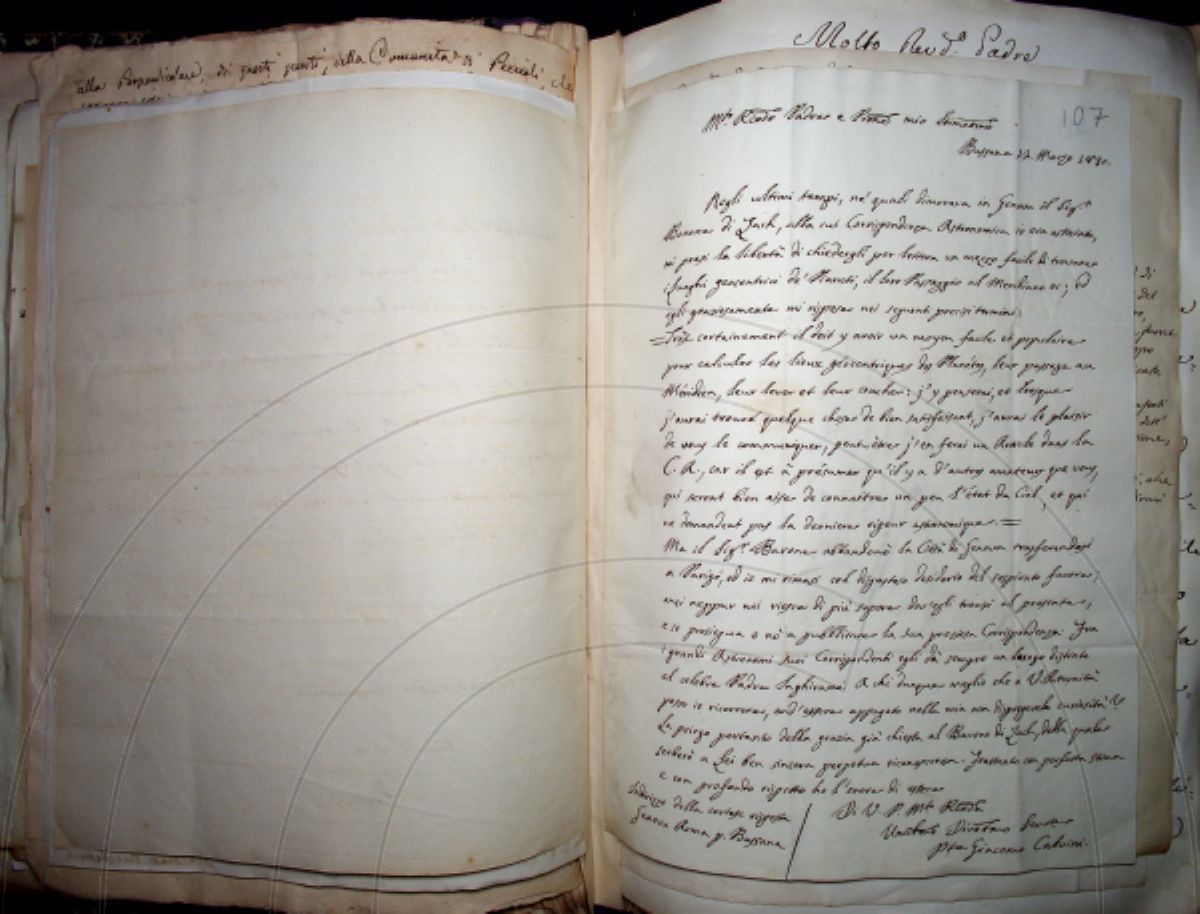 alla Perpendicolare, di questi punti, della Comunità di Peccioli, che
Molto Rev.do Padre
107
M.to R.do Padre e Pron. mio
Bussana 22 Marzo 1830.
Negli ultimi tempi, ne' quali dimorava in Genova il Sig.r
Barone di Zach, alla cui Corrispondenza Astronomica io era
mi presi la libertà di chiedergli per lettera un mezzo facile di trovare
i luoghi geocentrici de' Pianeti, il loro Passaggio al Meridiano ec; ed
egli graziosamente mi rispose nei seguenti precisi termini:
= Très certainement il doit y avoir un moyen facile et populaire
pour calculer les lieux géocentriques des Planètes, leur passage au
Méridien, leur lever et leur coucher: j'y penserai, et lorsque
j'aurai trouvé quelque chose de bien satisfaisant, j'aurai le plaisir
de vous le communiquer, peut-être j'en ferai un Article dans la
C. A., car il est à présumer qu'il y a d'autres amateurs que vous,
qui seront bien aises de connaître un peu l'état du Ciel, et qui
ne demandent pas la dernière rigueur astronomique. =
Ma il Sig.r Barone abbandonò la Città di Genova trasferendosi
a Parigi, ed io mi rimasi col disgustoso desiderio del favore;
anzi neppur mi di più sapere dov'egli trovisi al presente,
e se prosegua o nò a pubblicare la sua preziosa Corrispondenza. Fra
i grandi Astronomi suoi Corrispondenti egli dà sempre un luogo distinto
al celebre Padre Inghirami. A chi dunque meglio che a V. Paternità
posso io ricorrere, ond'essere appagato nella mia non dispregevole curiosità?
La priego pertanto della grazia già chiesta al Barone di Zach, della quale
serberò a Lei ben sincera perpetua riconoscenza. Frattanto con perfetta stima
e con profondo rispetto ho l'onore di essere
Di V. P. M.to R.da
Indirizzo della cortese risposta
Genova Roma p. Bussana
Umiliss.o Divotiss.o Servitore
P.te Giacomo Calvini.